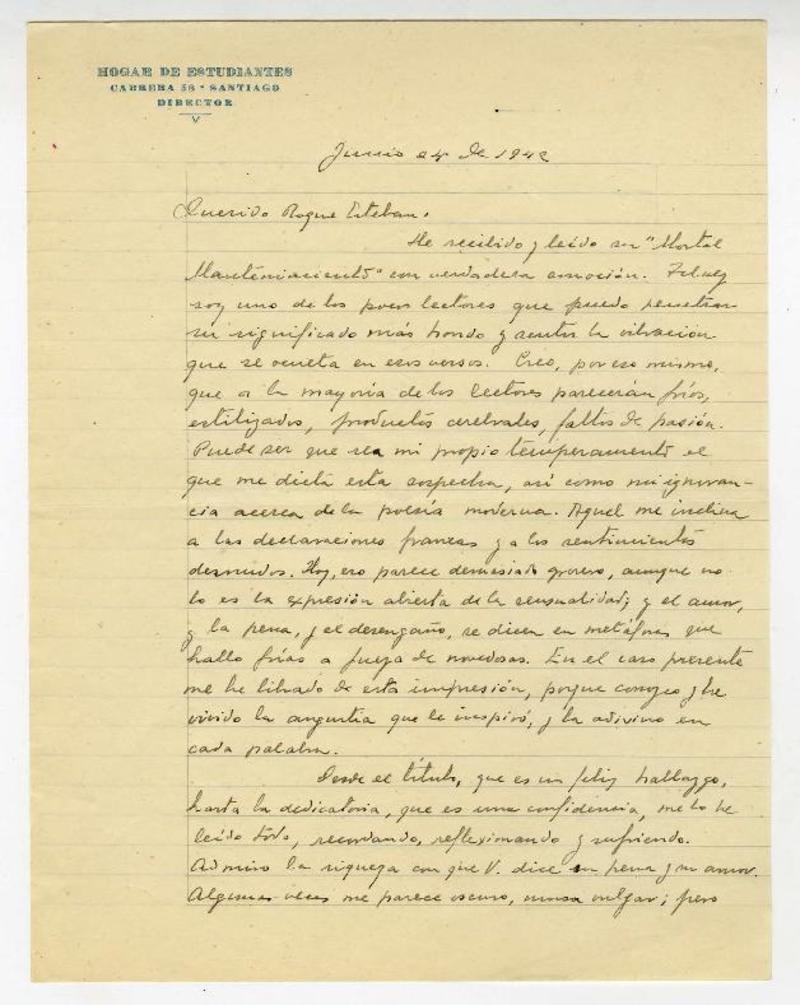 HOGAR DE ESTUDIANTES
CARRERA 58 - SANTIAGO
DIRECTOR
Junio 24 de 1942
Querido Roque Esteban.
He recibido y leído su "Mortal
Mantenimiento" con verdadera emoción. Tal vez
soy uno de los pocos lectores que puede penetrar
su significado más hondo y sentir la vibración
que se oculta en esos versos. Creo, por eso mismo,
que a la mayoría de los lectores parecerán fríos,
estilizados, productos cerebrales, faltos de pasión.
Puede ser que sea mi propio temperamento el
que me dicta esta sospecha, así como mi ignoran-
cia acerca de la poesía moderna. Aquel me inclina
a las declaraciones francas y a los sentimientos
desnudos. Hoy, eso parece demasiado grosero, aunque no
lo es la expresión abierta de la sensualidad; y el amor,
y la pena, y el desengaño, se dicen en metáforas que
hallo frías a fuerza de novedosas. En el caso presente
me he librado de esta impresión, porque conozco y he
vivido la angustia que le inspiró, y la adivino en
cada palabra.
Desde el título, que es un feliz hallazgo,
hasta la dedicatoria, que es una confidencia, me lo he
leído todo, recordando, reflexionando y sufriendo.
Admiro la riqueza con que V. dice su pena y su amor.
Algunas veces me parece oscuro, nunca vulgar; pero